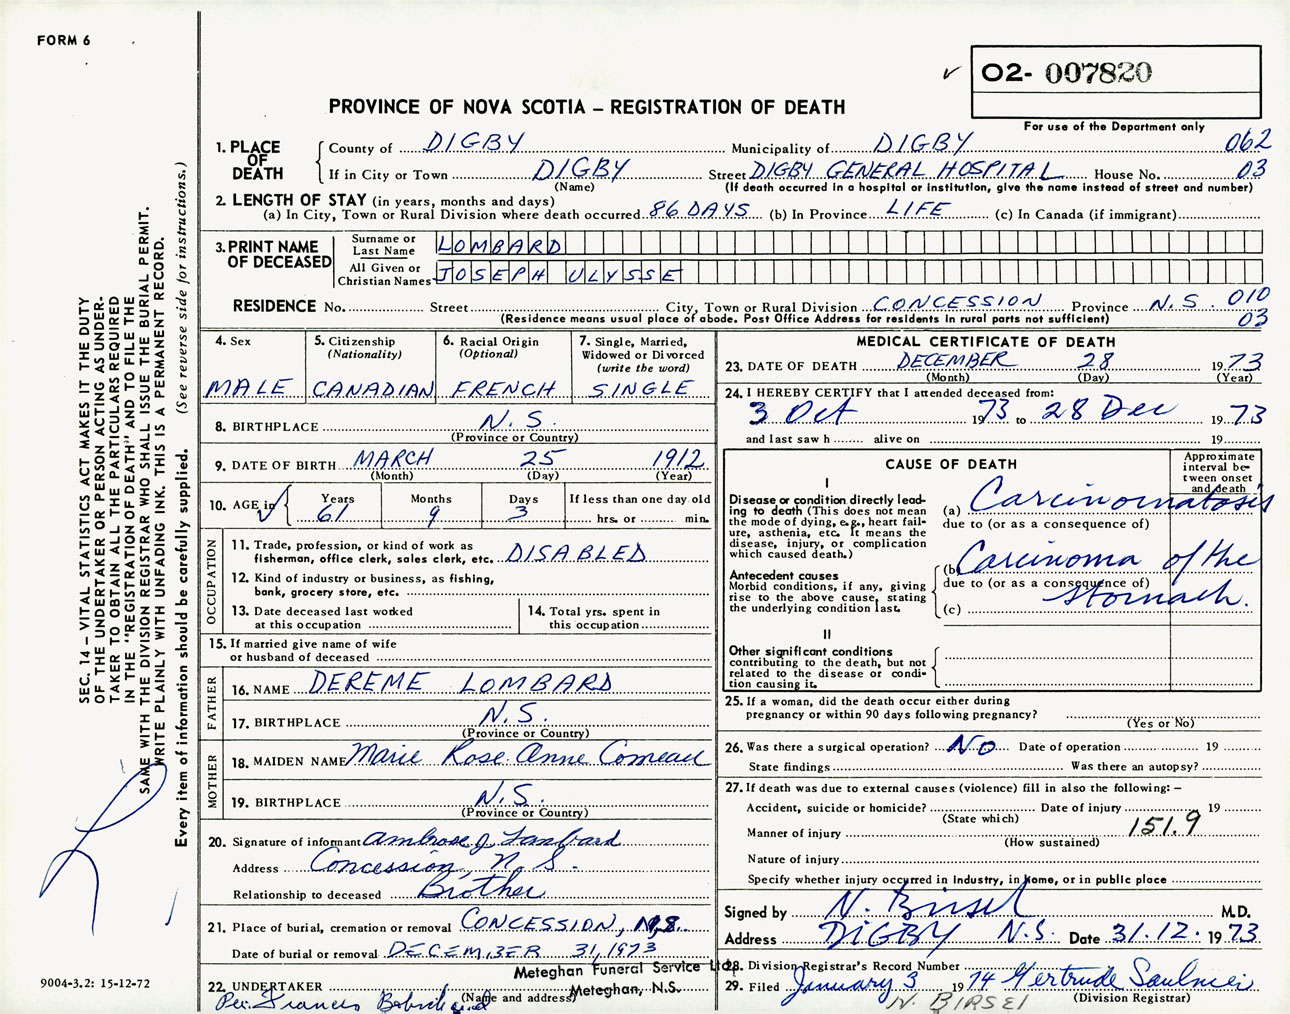 FORM 6
02- 007820
PROVINCE OF NOVA SCOTIA – REGISTRATION OF DEATH
For use of the Department only
1. PLACE OF DEATH
County of DIGBY Municipality of DIGBY 062
If in City or Town DIGBY Street DIGBY GENERAL HOSPITAL House No. 03
(Name) (If death occurred in a hospital or institution, give the name instead of street and number)
2. LENGTH OF STAY (in years, months and days)
(a) In City, Town or Rural Division where death occurred 86 DAYS (b) In Province LIFE (c) In Canada (if immigrant)
3. PRINT NAME OF DECEASED
Surname or Last Name LOMBARD
All Given or Christian Names JOSEPH ULYSSE
RESIDENCE No. Street City, Town or Rural Division CONCESSION Province N.S. 010
(Residence means usual place of abode. Post Office Address for residents in rural parts not sufficient) 03
4. Sex
MALE
5. Citizenship
(Nationality)
CANADIAN
6. Racial Origin
(Optional)
FRENCH
7. Single, Married,
Widowed or Divorced
(write the word)
SINGLE
8. BIRTHPLACE N.S.
(Province or Country)
9. DATE OF BIRTH MARCH 25 1912
(Month) (Day) (Year)
10. AGE in Years Months Days If less than one day old
61 9 3 hrs. or min.
OCCUPATION
11. Trade, profession, or kind of work as
fisherman, office clerk, sales clerk, etc. DISABLED
12. Kind of industry or business, as fishing,
bank, grocery store, etc.
13. Date deceased last worked
at this occupation
14. Total yrs. spent in
this occupation
15. If married give name of wife
or husband of deceased
FATHER
16. NAME DEREME LOMBARD
17. BIRTHPLACE N.S.
(Province or Country)
MOTHER
18. MAIDEN NAME Marie Rose Anne Comeau
19. BIRTHPLACE N.S.
(Province or Country)
20. Signature of informant Ambrose J. Lombard
Address Concession, N. S.
Relationship to deceased Brother
21. Place of burial, cremation or removal CONCESSION, N.S.
Date of burial or removal DECEMBER 31, 1973
Meteghan Funeral Service Ltd.
22. UNDERTAKER Meteghan, N.S.
(Name and address)
Per: Francis
MEDICAL CERTIFICATE OF DEATH
23. DATE OF DEATH DECEMBER 28 1973
(Month) (Day) (Year)
24. I HEREBY CERTIFY that I attended deceased from:
3 Oct 1973 to 28 Dec 1973
and last saw h alive on 19
CAUSE OF DEATH
Approximate
interval be-
tween onset
and death
I
Disease or condition directly lead-
ing to death (This does not mean
the mode of dying, e.g., heart fail-
ure, asthenia, etc. It means the
disease, injury, or complication
which caused death.)
(a) Carcinomatosis
due to (or as a consequence of)
Antecedent causes
Morbid conditions, if any, giving
rise to the above cause, stating
the underlying condition last.
(b) Carcinoma of the
due to (or as a consequence of)
(c) Stomach.
II
Other significant conditions
contributing to the death, but not
related to the disease or condi-
tion causing it.
25. If a woman, did the death occur either during
pregnancy or within 90 days following pregnancy?
(Yes or No)
26. Was there a surgical operation? NO Date of operation 19
State findings Was there an autopsy?
27. If death was due to external causes (violence) fill in also the following: –
Accident, suicide or homicide? Date of injury 19
(State which)
151.9
Manner of injury
(How sustained)
Nature of injury
Specify whether injury occurred in Industry, in Home, or in public place
Signed by N. Birsel M.D.
Address DIGBY N.S. Date 31.12.1973
28. Division Registrar's Record Number
29. Filed January 3 1974 Gertrude Saulnier
(Division Registrar)
N. BIRSEL
SEC. 14 – VITAL STATISTICS ACT MAKES IT THE DUTY
OF THE UNDERTAKER OR PERSON ACTING AS UNDER-
TAKER TO OBTAIN ALL THE PARTICULARS REQUIRED
IN THE "REGISTRATION OF DEATH" AND TO FILE THE
SAME WITH THE DIVISION REGISTRAR WHO SHALL ISSUE THE BURIAL PERMIT.
WRITE PLAINLY WITH UNFADING INK. THIS IS A PERMANENT RECORD.
Every item of information should be carefully supplied. (See reverse side for instructions.)
9004-3.2: 15-12-72